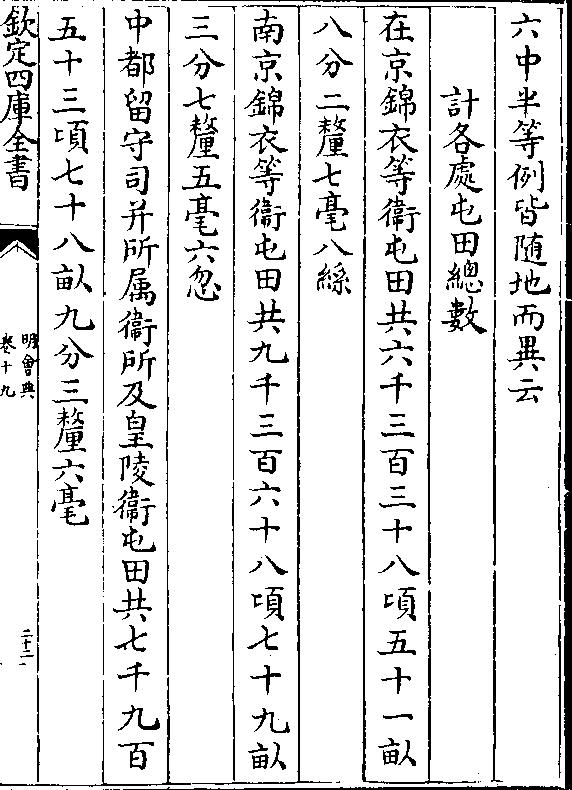 六中半等例皆随地而異云
計各處屯田總數
在京錦衣等衞屯田共六千三百三十八頃五十一畝
八分二釐七毫八絲
南京錦衣等衞屯田共九千三百六十八頃七十九畝
三分七釐五毫六忽
中都留守司并所属衞所及皇陵衞屯田共七千九百
五十三頃七十八畝九分三釐六毫
欽定四庫全書
明會典
卷十九
二十二